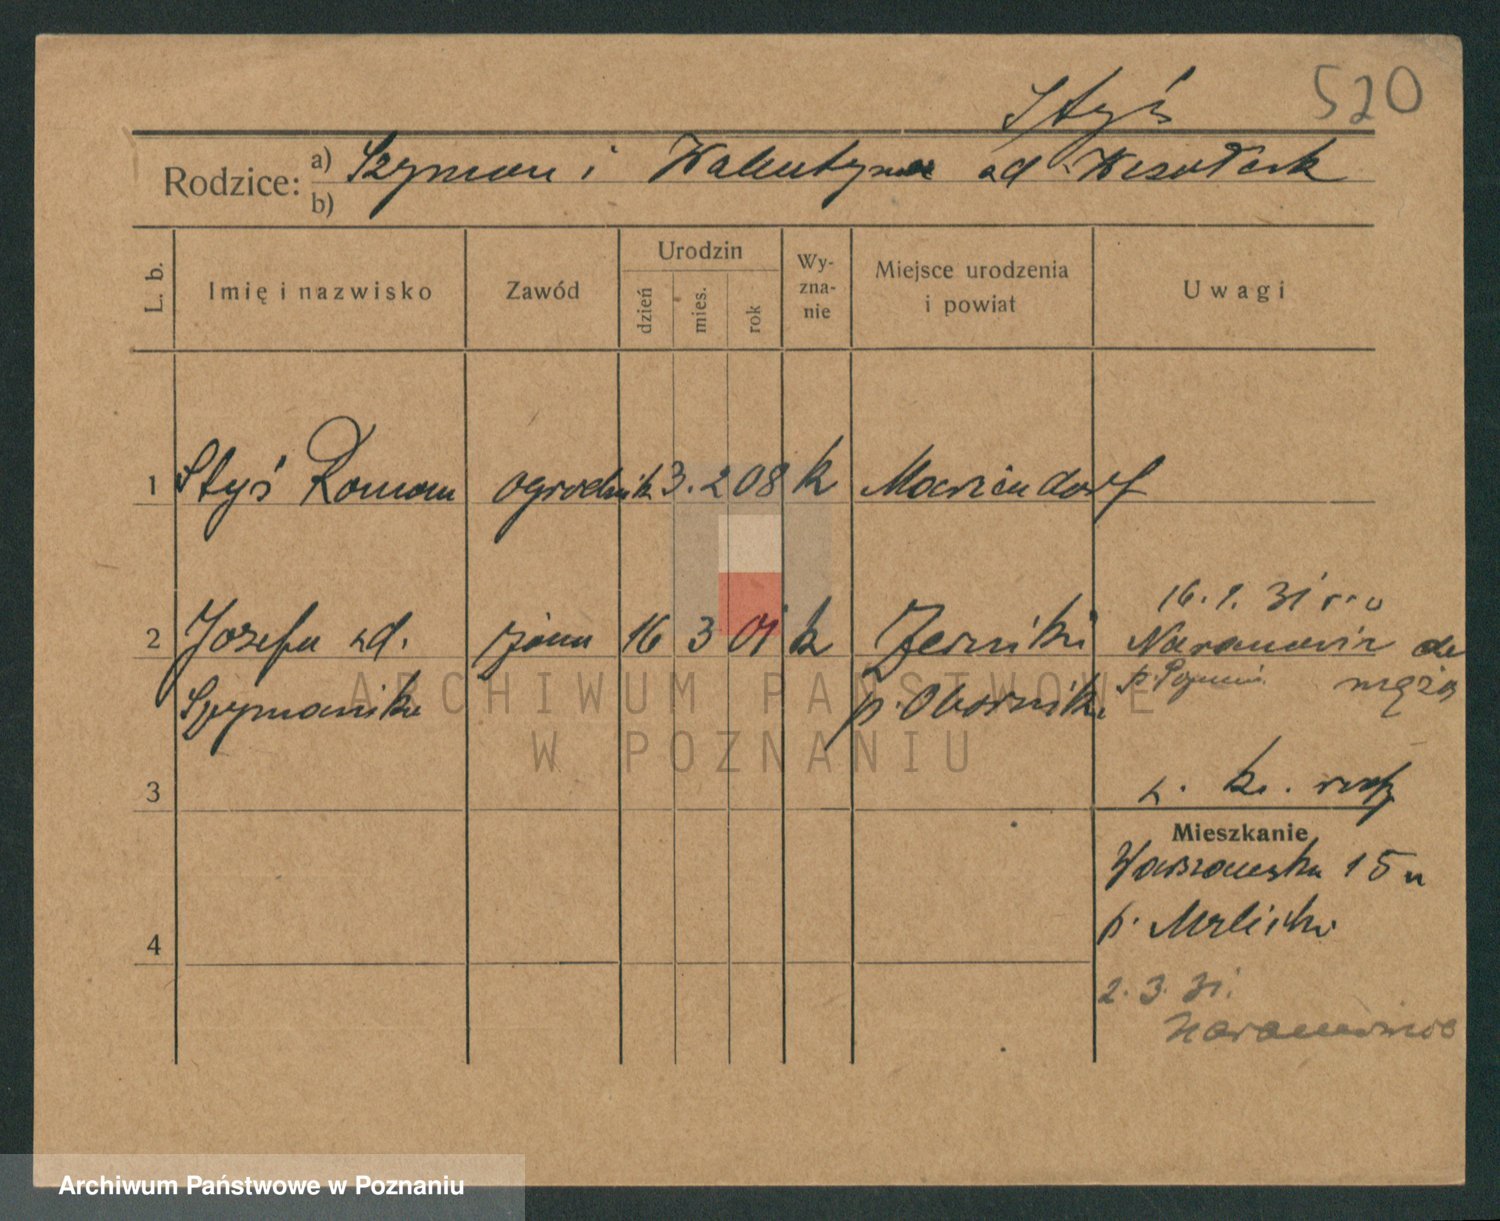 520
Styś
Rodzice: a) Szymon i Walentyna zd. Wesołek
b)
L. b. Imię i nazwisko Zawód Urodzin dzień mies. rok Wy-zna-nie Miejsce urodzenia i powiat Uwagi
1 Styś Roman ogrodnik 3. 2 08 k Mariendorf
16. 1. 31
2 Józefa zd. żona 16 3 01 k Żerniki Naramowice do
Szymańska p. Oborniki męża
3
Mieszkanie
Warszawska 15 u
p.
4
2. 3. 31.
Naramowice
ARCHIWUM PAŃSTWOWE
W POZNANIU
Archiwum Państwowe w Poznaniu